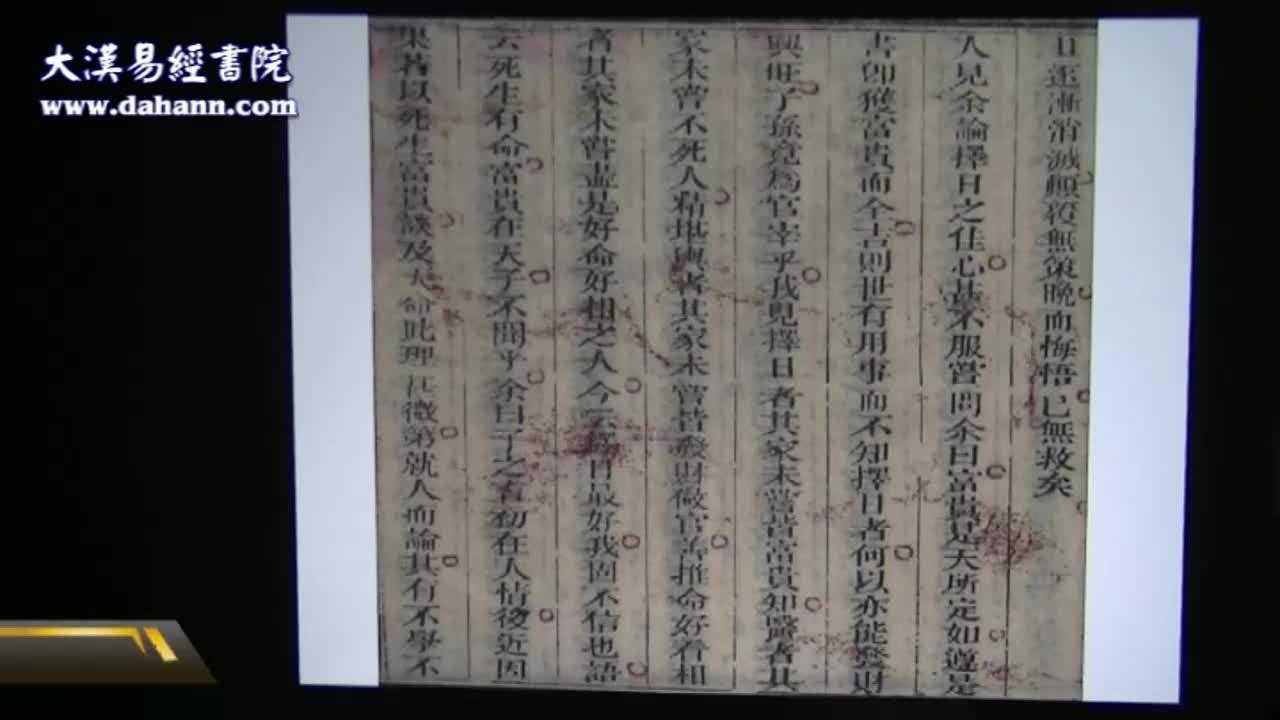 大漢易經書院
www.dahann.com
日逐漸消滅顛覆無策晚而悔悟已無救矣
人見余論擇日之佳心甚不服嘗問余曰富貴是天所定如遵是
書卽獲富貴而全吉則世有用事而不知擇日者何以亦能發財
興旺子孫竟為官宰乎我見擇日者其家未嘗皆富貴知醫者其
家未嘗不死人精堪輿者其家未嘗皆發財做官善推命好看相
者其家未嘗盡是好命好相之人今云爲日最好我固不信也語
云死生有命富貴在天子不聞乎余曰子之看初在人情後近因
果若以死生富貴談及天命此理 微第就人而論其有不學不